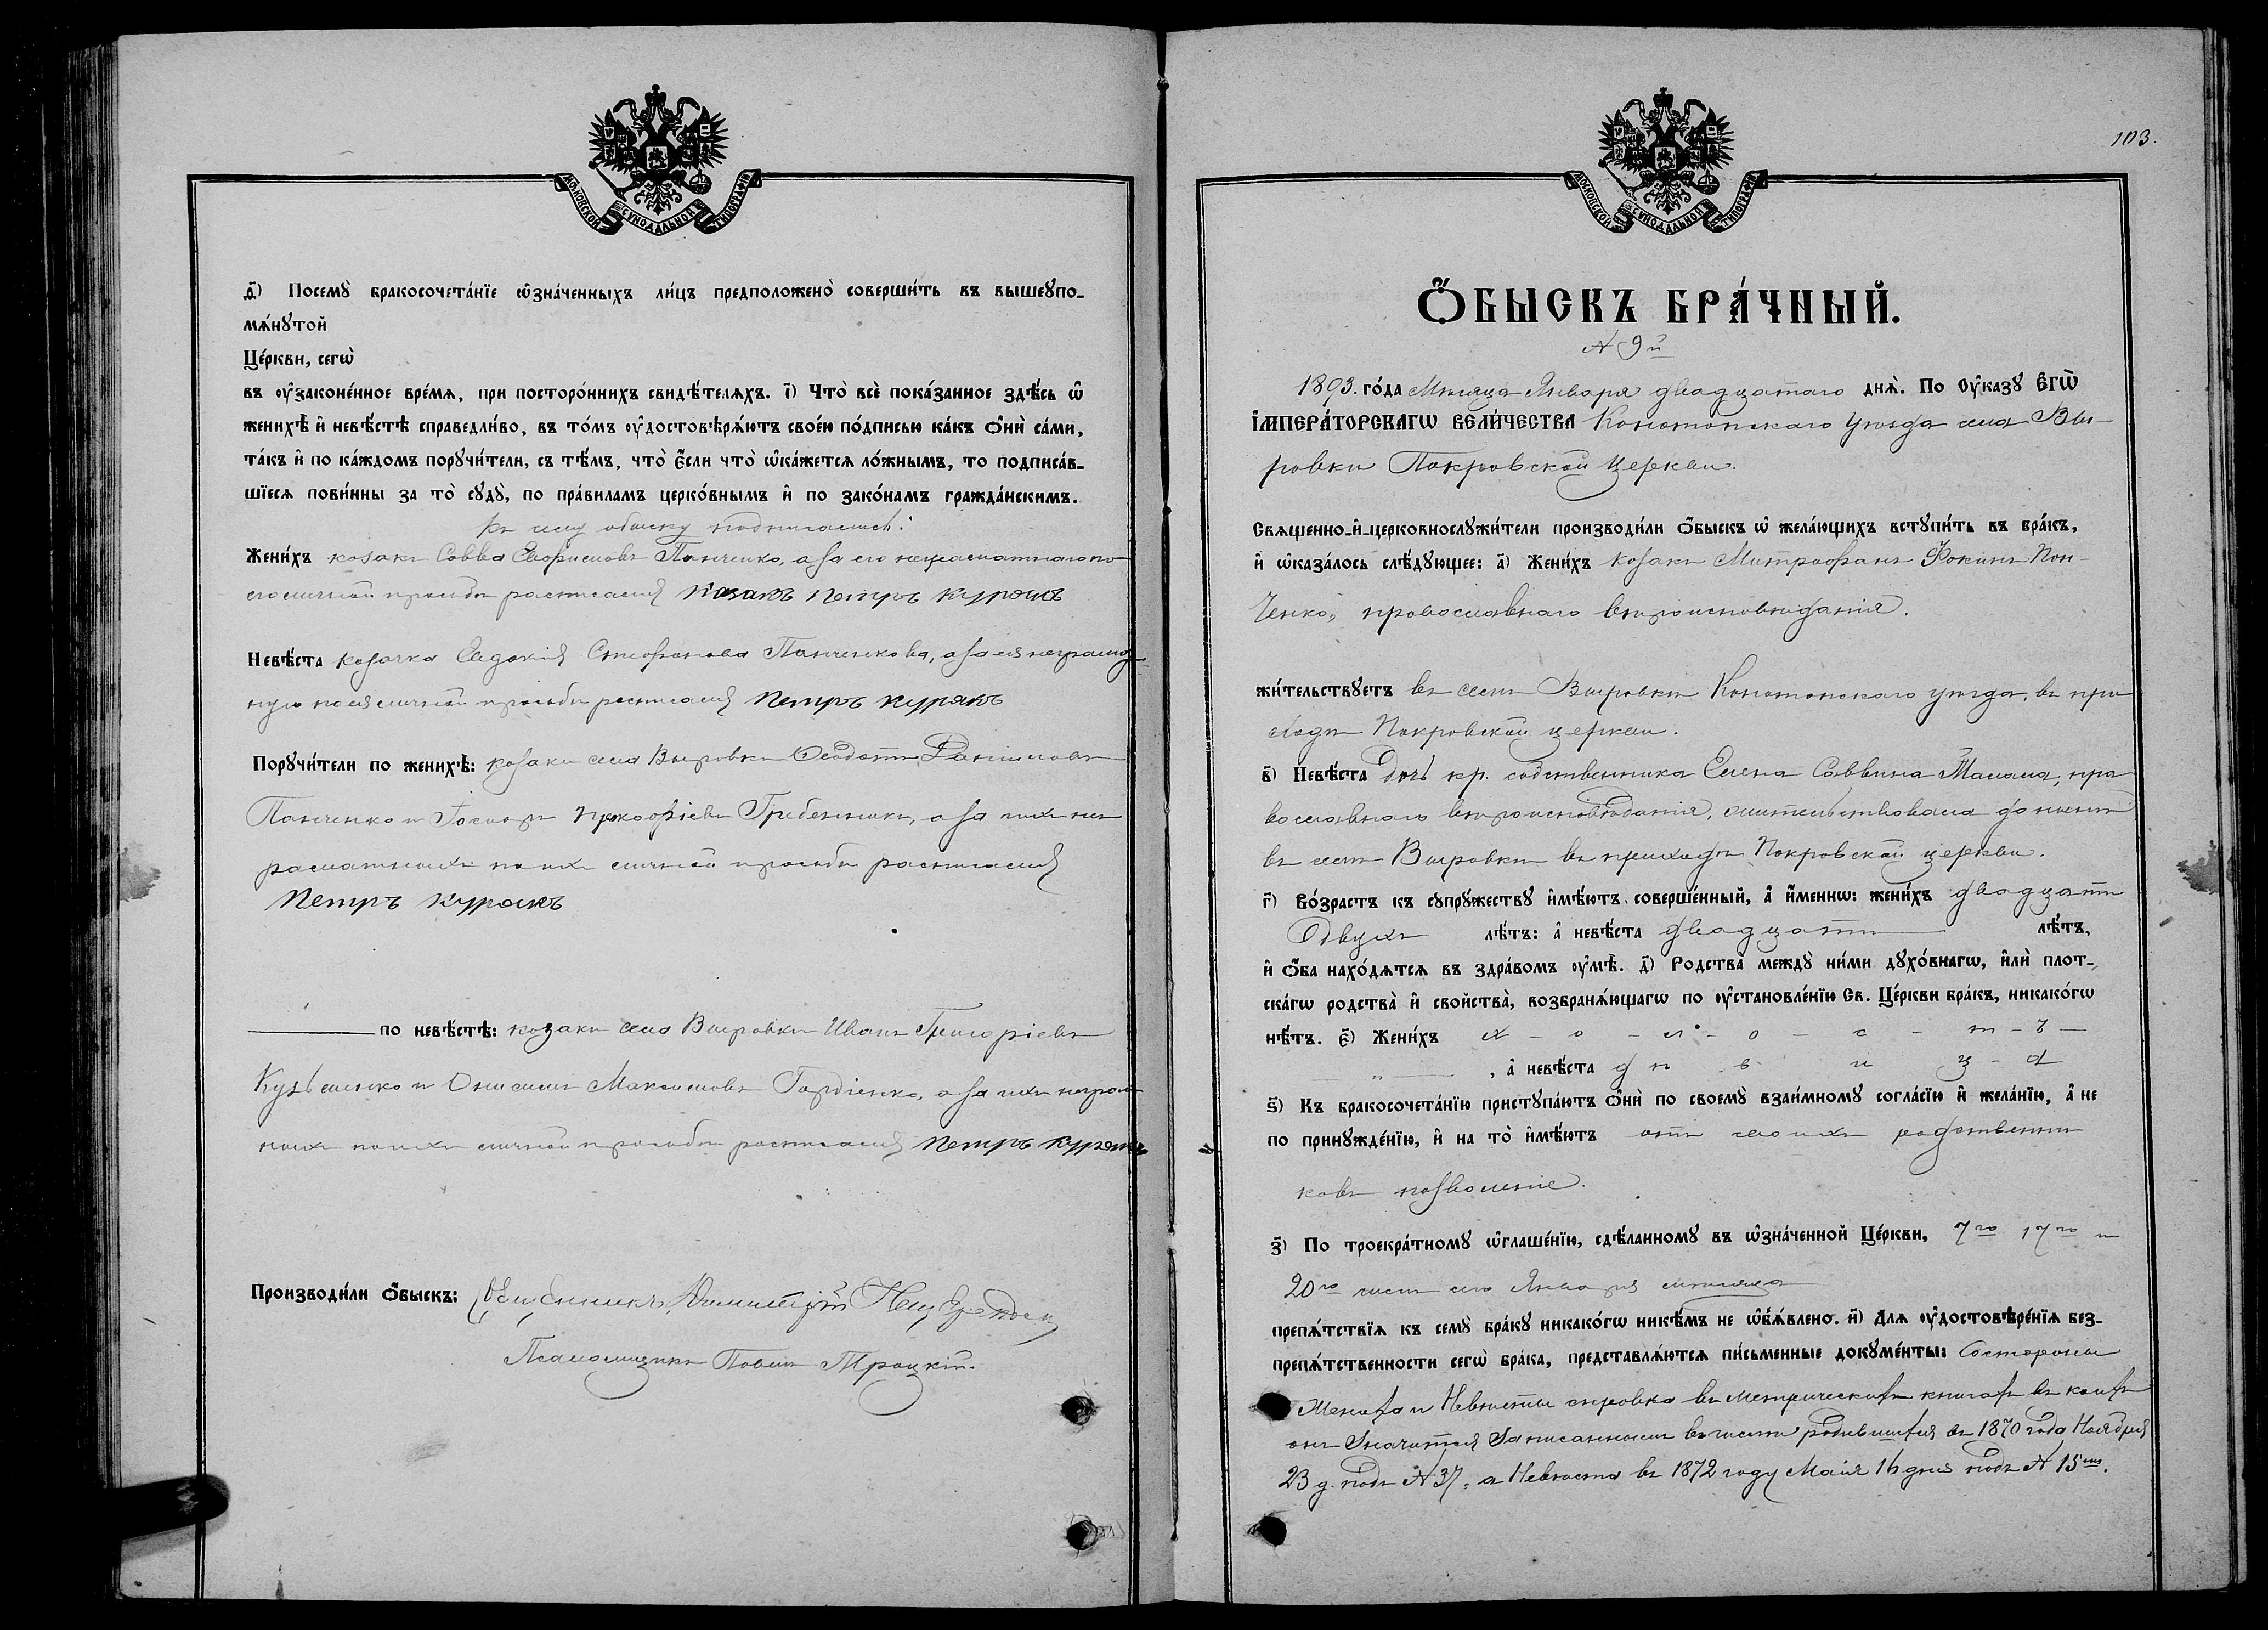 МОСКОВСКОЙ СѴНОДАЛЬНОЙ ТИПОГРАФІИ
д҃) Посемꙋ̀ бракосочета́нїе ѡ҆зна́ченныхъ ли́цъ предположено̀ соверши́ть въ вышеꙋпо-
мѧ́нꙋтой
Це́ркви, сегѡ̀
въ ᲂу҆законе́нное вре́мѧ, при посторо́ннихъ свидѣ́телѧхъ. і҃) Что̀ всѐ пока́занное здѣ́сь ѡ҆
женихѣ̀ и҆ невѣ́стѣ справедли́во, въ то́мъ ᲂу҆достовѣрѧ́ютъ свое́ю по́дписью ка́къ ѻ҆нѝ са́ми,
та́къ и҆ по ка́ждомъ порꙋчи́тели, съ тѣ́мъ, что̀ є҆́сли что̀ ѡ҆ка́жется ло́жнымъ, то подписа́в-
шїеся пови́нны за то̀ сꙋдꙋ̀, по пра́виламъ церко́внымъ и҆ по зако́намъ гражда́нскимъ.
Къ сему обыску подписались:
Жени́хъ козакъ Савва Панченко, а за его неграмотнаго по
его личной просьбѣ росписался Козакъ Петръ Курракъ
Невѣ́ста козачка Евдокія Стефанова Панченкова, а за ея неграмот-
ную по ея личной просьбѣ росписался Петръ Куррякъ
Порꙋчи́тели по женихѣ̀: козаки села Вировки Ѳеодотъ Даніиловъ
Панченко и Прокофіевъ Гребенникъ, а за ихъ нег
рамотныхъ по ихъ личной просьбѣ росписался
Петръ Курракъ
по невѣ́стѣ: козаки села Вировки Иванъ Григоріевъ
Кузьменко и Онисимъ Максимовъ Гордіенко, а за ихъ неграмот
ныхъ по ихъ личной просьбѣ росписался Петръ Курракъ
Производи́ли ѻ҆́быскъ: Священникъ Димитрій
Псаломщикъ Павелъ Троцкій.
103.
МОСКОВСКОЙ СѴНОДАЛЬНОЙ ТИПОГРАФІИ
Ѻ҆́БЫСКЪ БРА́ЧНЫЙ.
№ 9й
1893. го́да Мѣсяца Января двадцатаго днѧ̀. По Ѹ҆ка́зꙋ Є҆гѡ̀
І҆МПЕРА́ТОРСКАГѠ ВЕЛИ́ЧЕСТВА Конотопскаго уѣзда села Ви-
ровки Покровской церкви.
Свѧщенно-и҆-церковнослꙋжи́тели производи́ли ѻ҆́быскъ ѡ҆ жела́ющихъ встꙋпи́ть въ бра́къ,
и҆ ѡ҆каза́лось слѣ́дꙋющее: а҃) Жени́хъ козакъ Митрофанъ Фокинъ Пан-
ченко, православнаго вѣроисповѣданія.
жи́тельствꙋетъ въ селѣ Вировкѣ Конотопскаго уѣзда, въ при
ходѣ Покровской церкви.
в҃) Невѣ́ста Дочь кр. собственника Елена Саввина Малама, пра
вославнаго вѣроисповѣданія, жительствовала до нынѣ
въ селѣ Вировкѣ въ приходѣ Покровской церкви.
г҃) Во́зрастъ къ сꙋпрꙋ́жествꙋ и҆мѣ́ютъ соверше́нный, а҆ и҆́меннѡ: жени́хъ двадцати
Двухъ лѣ́тъ: а҆ невѣ́ста двадцати лѣ́тъ,
и҆ ѻ҆́ба нахо́дѧтся въ здра́вомъ ᲂу҆мѣ̀. д҃) Родства̀ междꙋ̀ ни́ми дꙋхо́внагѡ, и҆лѝ плот-
ска́гѡ родства̀ и҆ свойства̀, возбранѧ́ющагѡ по ᲂу҆становле́нїю Св. Це́ркви бра́къ, никако́гѡ
нѣ́тъ. є҃) Жени́хъ х - о - л - о - с - т - ъ -
" , а҆ невѣ́ста д ѣ в и ц - а
ѕ҃) Къ бракосочета́нїю пристꙋпа́ютъ ѻ҆нѝ по своемꙋ̀ взаи́мномꙋ согла́сїю и҆ жела́нїю, а҆ не
по принꙋжде́нїю, и҆ на то̀ и҆мѣ́ютъ отъ своихъ родственни
ковъ позволеніе.
з҃) По троекра́тномꙋ ѡ҆глаше́нїю, сдѣ́ланномꙋ въ ѡ҆зна́ченной Це́ркви, 7го 17го и
20го числъ сего Января мѣсяца
препѧ́тствїѧ къ семꙋ̀ бра́кꙋ никако́гѡ никѣ́мъ не ѡ҆б̾ѧ́влено. и҃) Длѧ ᲂу҆достовѣре́нїѧ без-
препѧ́тственности сегѡ̀ бра́ка, представлѧ́ются пи́сьменные докꙋме́нты: Состороны
Жениха и Невѣсты справка въ Метрическихъ книгахъ въ коихъ
онъ Значится Записаннымъ въ числѣ родившихся въ 1870 года Ноября
23 д. подъ № 37, а Невѣста въ 1872 году Маія 16 дня подъ № 15мъ.